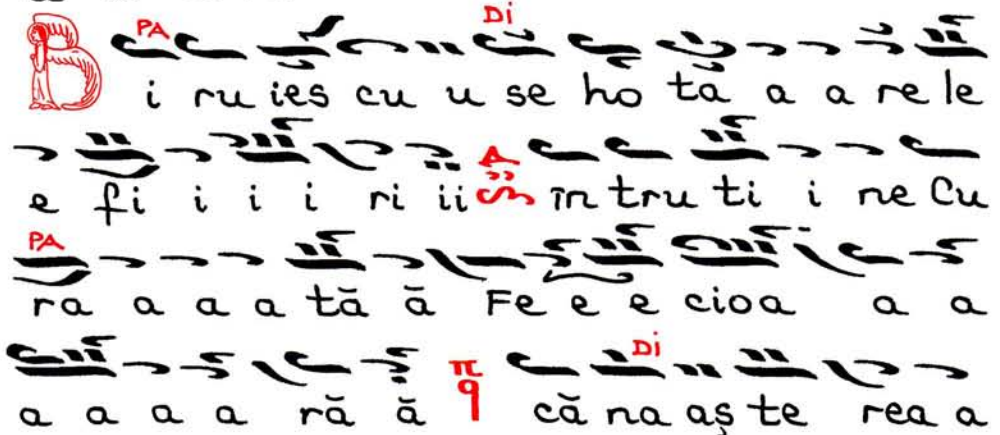 PA Di
B i ru ies cu u se ho tă a a re le
e fi i i i ri ii în tru ti i ne Cu
PA
ra a a a tă ă Fe e e cioa a a
Di
a a a a ră ă π q că na aș te rea a